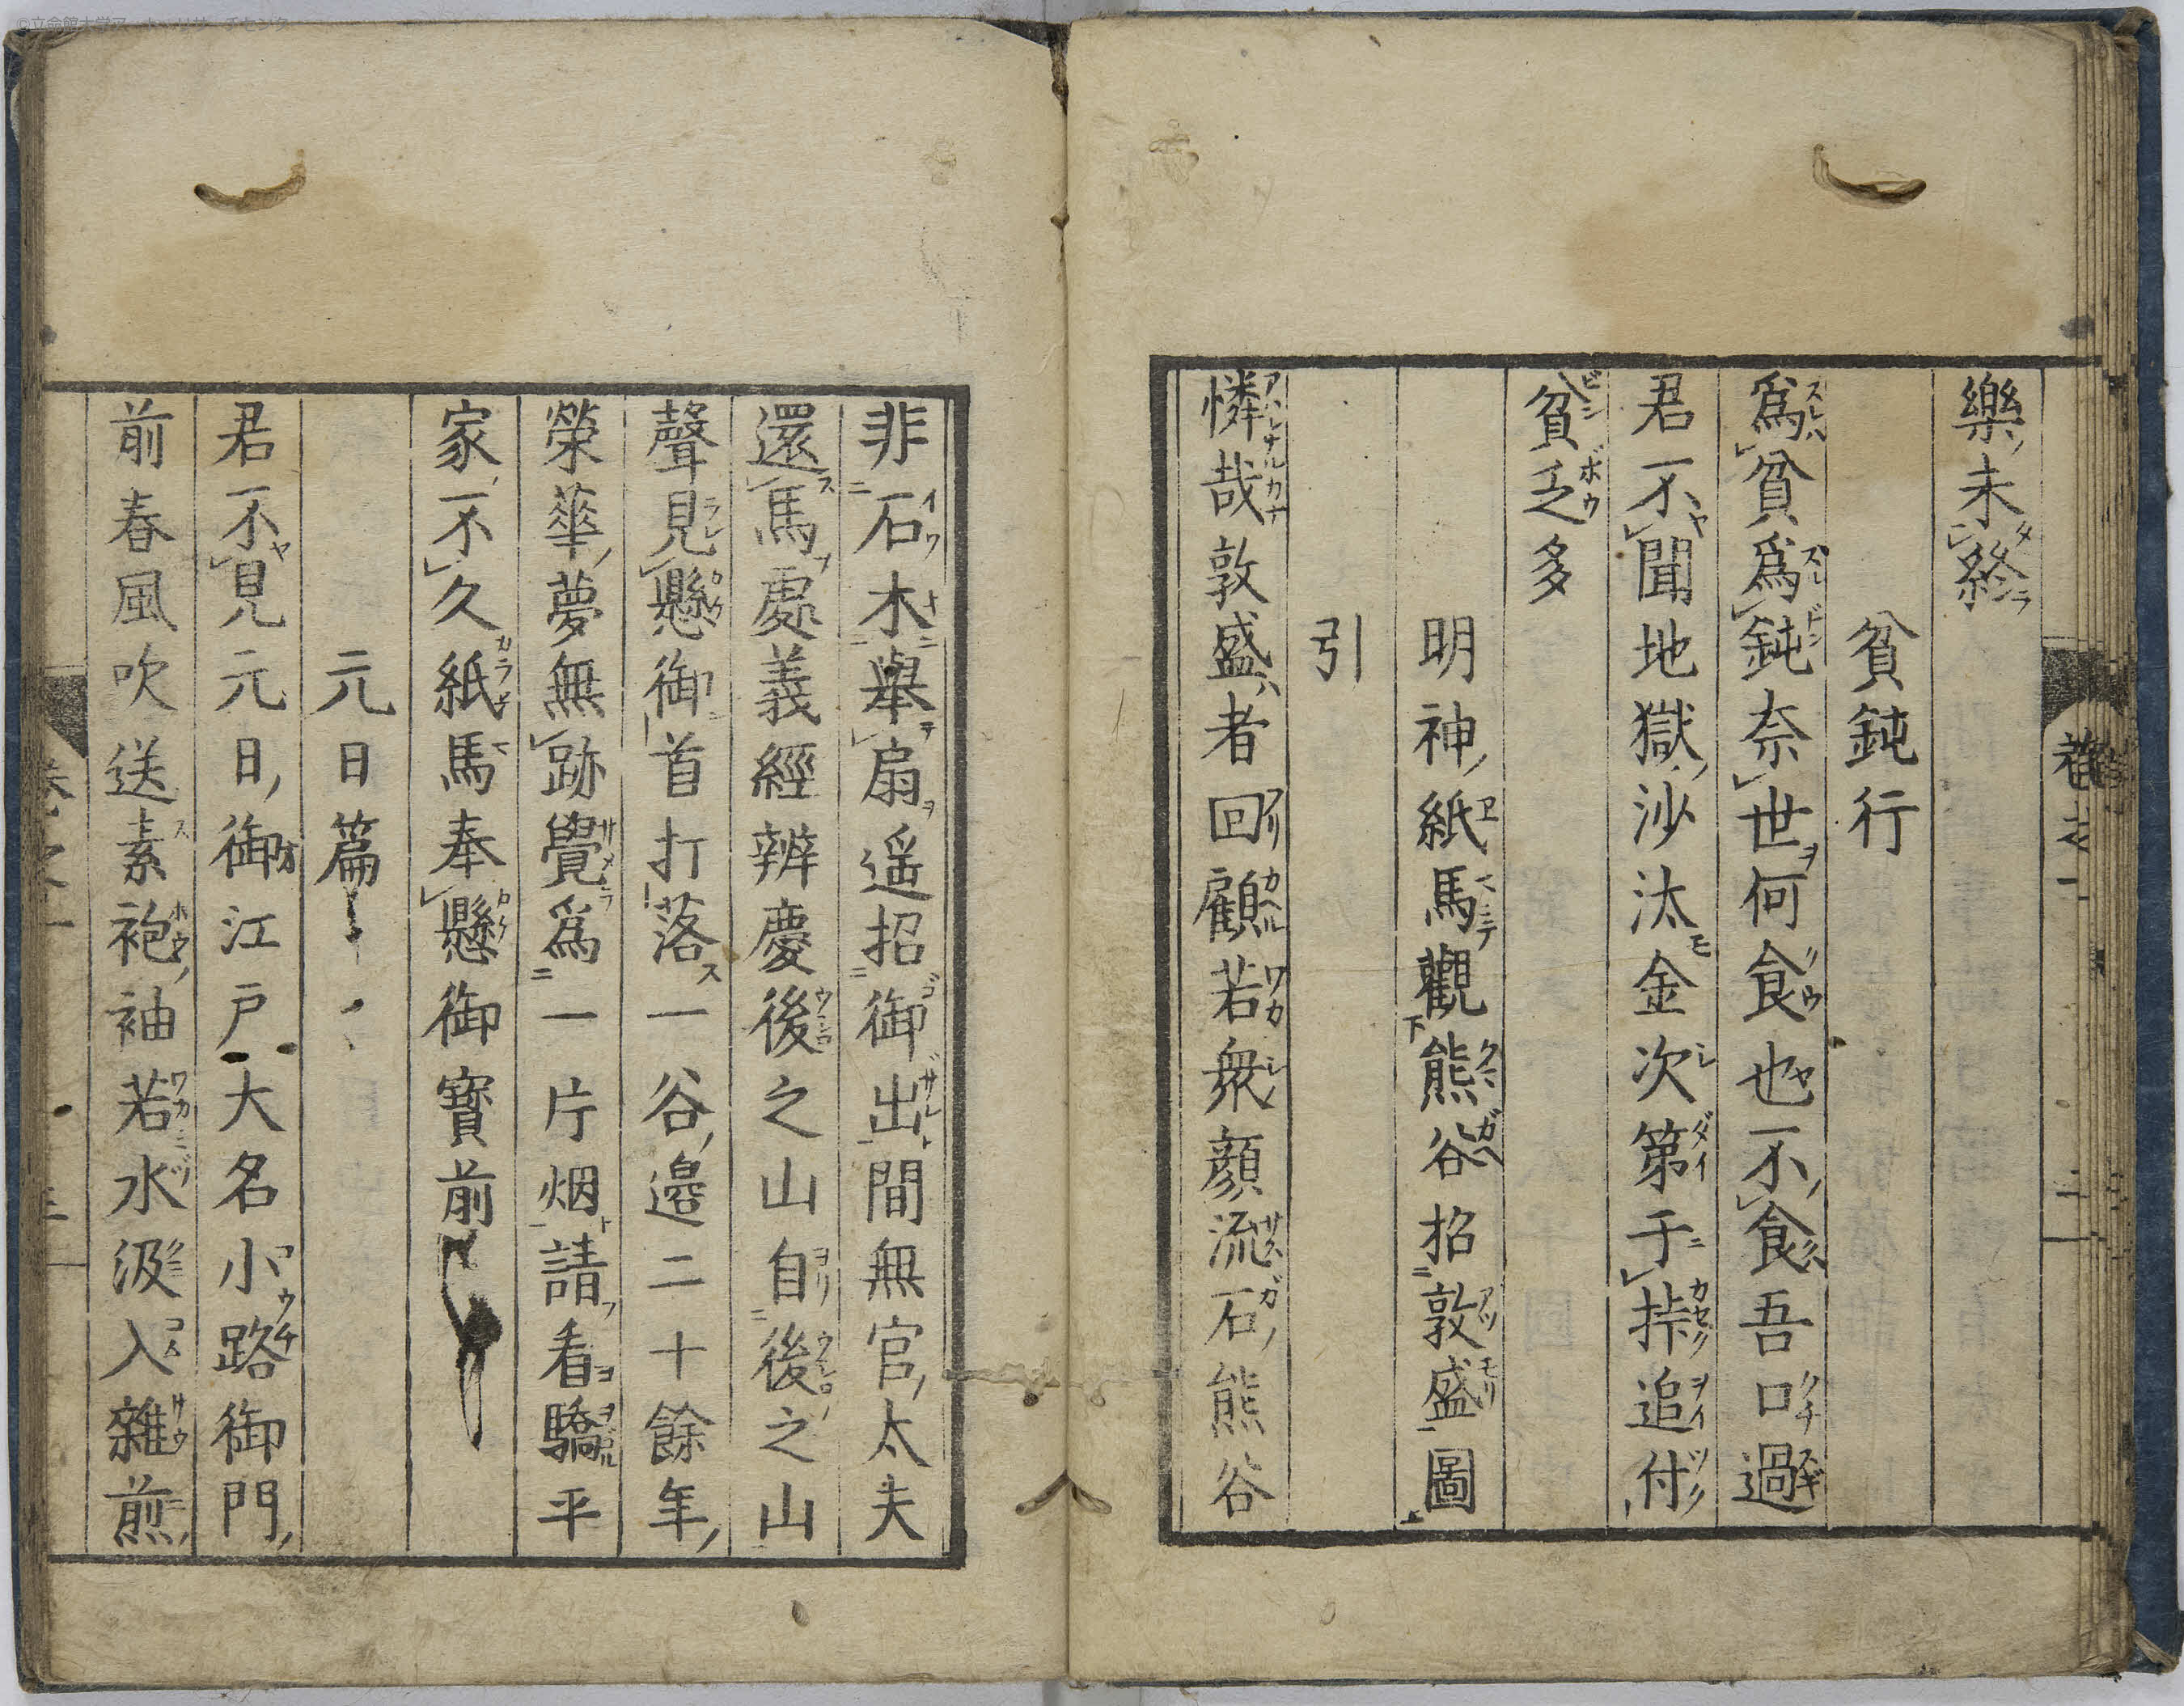 樂未終
貧鈍行
爲貧爲鈍奈世何食也不食吾口過
君不聞地獄沙汰金次第于挊追付
貧乏多
明神紙馬觀熊谷招敦盛圖
引
憐哉敦盛者回顧若衆顔流石熊谷
非石木擧扇遥招御出間無官太夫
還馬處義經辨慶後之山自後之山
聲見懸御首打落一谷邉二十餘年
榮華夢無跡覺爲一片烟請看驕平
家不久紙馬奉懸御寶前
元日篇
君不見元日御江戸大名小路御門
前春風吹送素袍袖若水汲入雜煎